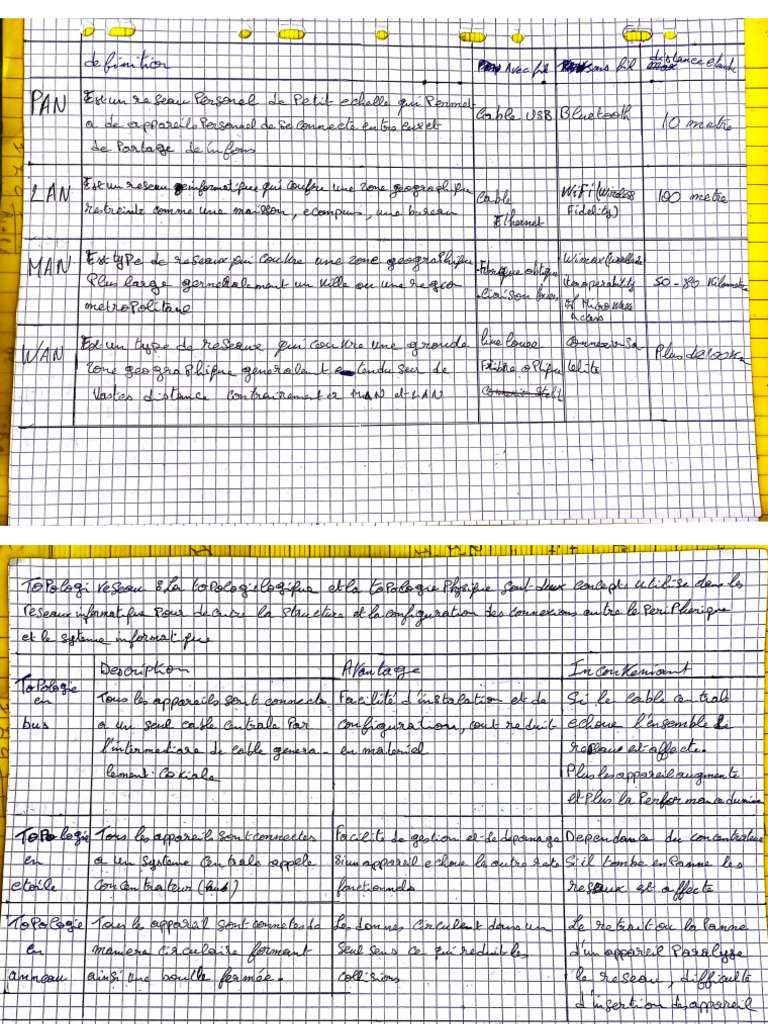 definition Avec fil sans fil distance etendu max
PAN
Est un reseau Personel de Petit echelle qui Permet
a de appareils Personnel de se connecte entre eux et
de Partage de infons
Cable USB
Bluetooth
10 metre
LAN
Est un reseau informatique qui couvre une zone geographique
restreinte comme une maison, ecampus, une bureau
Cable
Ethernet
WiFi (Wireless
Fidelity)
100 metre
MAN
Est type de reseaux qui couvre une zone geographique
Plus large generalement un ville ou une region
metropolitane
optique
liaison
Wimax (
interoperability
of Micro Wave
Access
50-80 Kilometre
WAN
Est un type de reseaux qui couvre une grande
zone geographique generalent etendu sur de
Vastes distance contrairement a MAN et LAN
line louse
Fibre optique
connexion Sa
telite
Plus de 100 Km
Topologi reseau : La topologie logique et la topologie Physique sont deux concepts utilise dans les
reseaux informatique Pour decrire la structure et la configuration des connexions entre le Peripherique
et le systeme informatique
Description Avantage Inconveniant
Topologie
en
bus
Tous les appareils sont connecte
a un seul cable centrale Par
l'intermediare de cable genera-
lement Coxiale
Facilité d'instalation et de
configuration, cout reduit
en materiel
Si le cable centrale
echoue l'ensemble de
reseaux est affecte.
Plus les appareil augmente
et Plus la Performance diminue
Topologie
en
etoile
Tous les appareil sont connectes
a un systeme Centrale appele
concentrateur (hub)
Facilite de gestion et de depannage
Si un appareil echoue le autre reste
fonctionnels
Dependance du concentrateur
Si il tombe en Panne les
reseaux est affecte
Topologie
en
anneau
Tous les appareil sont connetes de
maniere circulaire formant
ainsi une boucle fermée.
Les donnes circulent dans un
seul sens ce qui reduit les
collisions
Le retrait ou la Panne
d'un appareil Paralyse
le reseau, difficulté
d'insertion des appareil